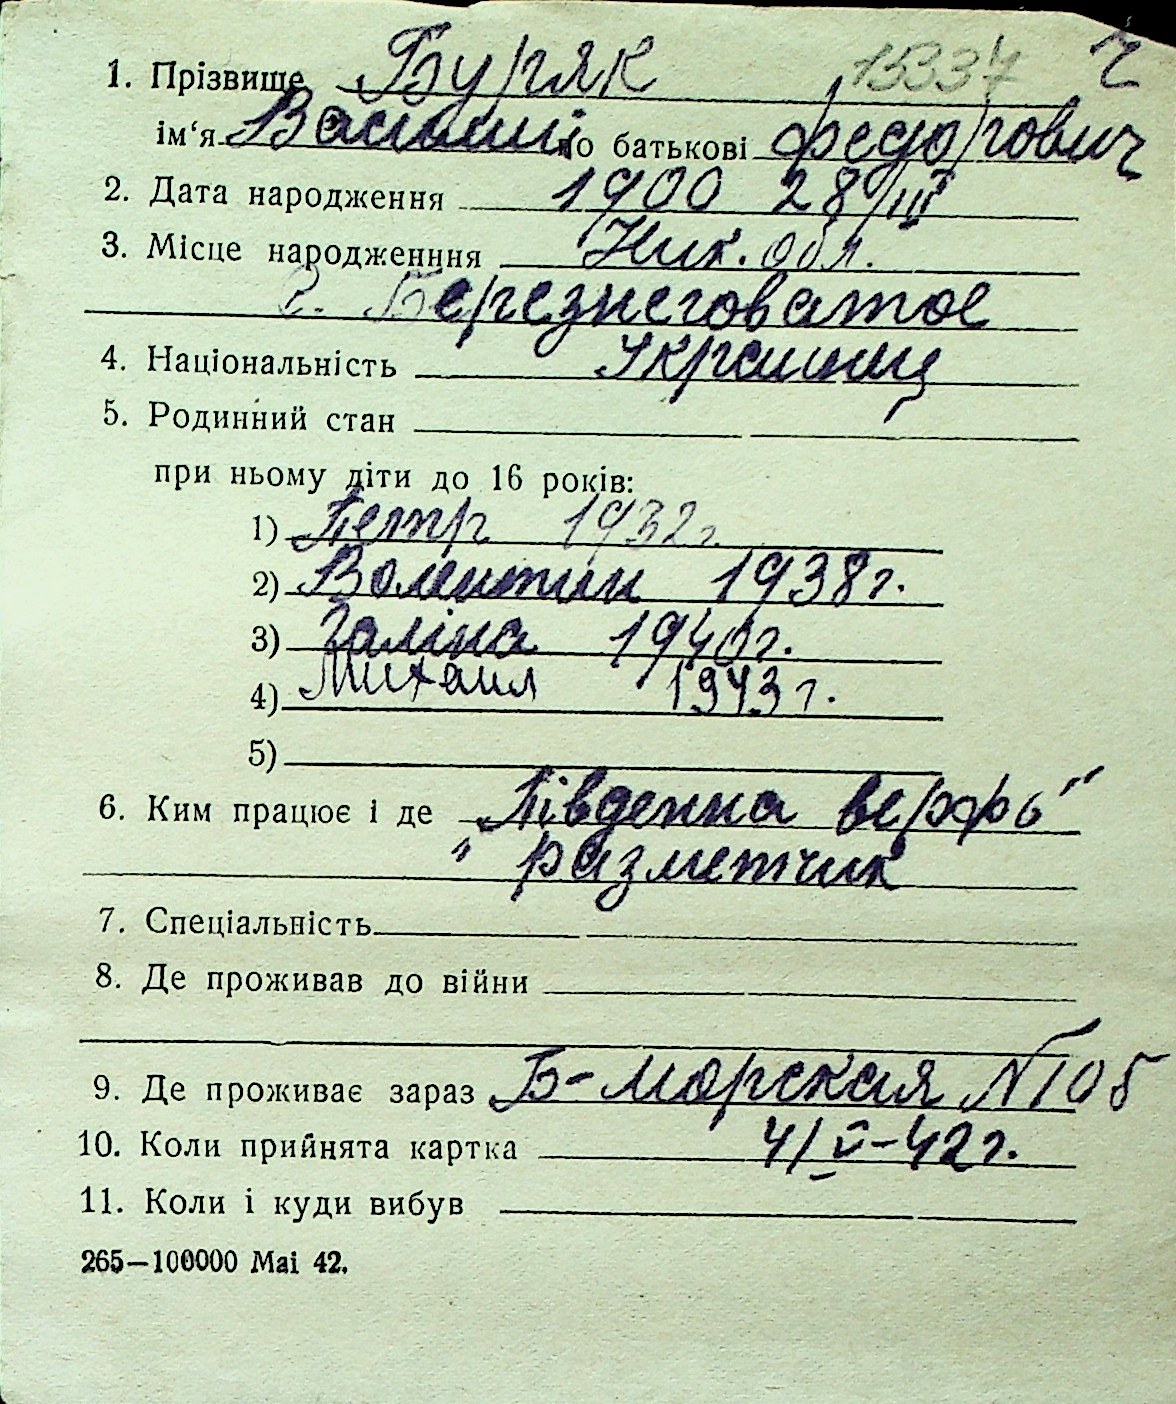 15337 ч
1. Прізвище Буряк
ім‘я Василий по батькові Федорович
2. Дата народження 1900 28/III
3. Місце народженння Ник. обл.
с. Березнеговатое
4. Національність Украинец
5. Родинний стан
при ньому діти до 16 років:
1) Петр 1932г.
2) Волентин 1938г.
3) Галіна 1940г.
4) Михаил 1943г.
5)
6. Ким працює і де „Південна верфь”
разметчик
7. Спеціальність
8. Де проживав до війни
9. Де проживає зараз Б-Морская №105
10. Коли прийнята картка 4/V-42г.
11. Коли і куди вибув
265—100000 Маі 42.